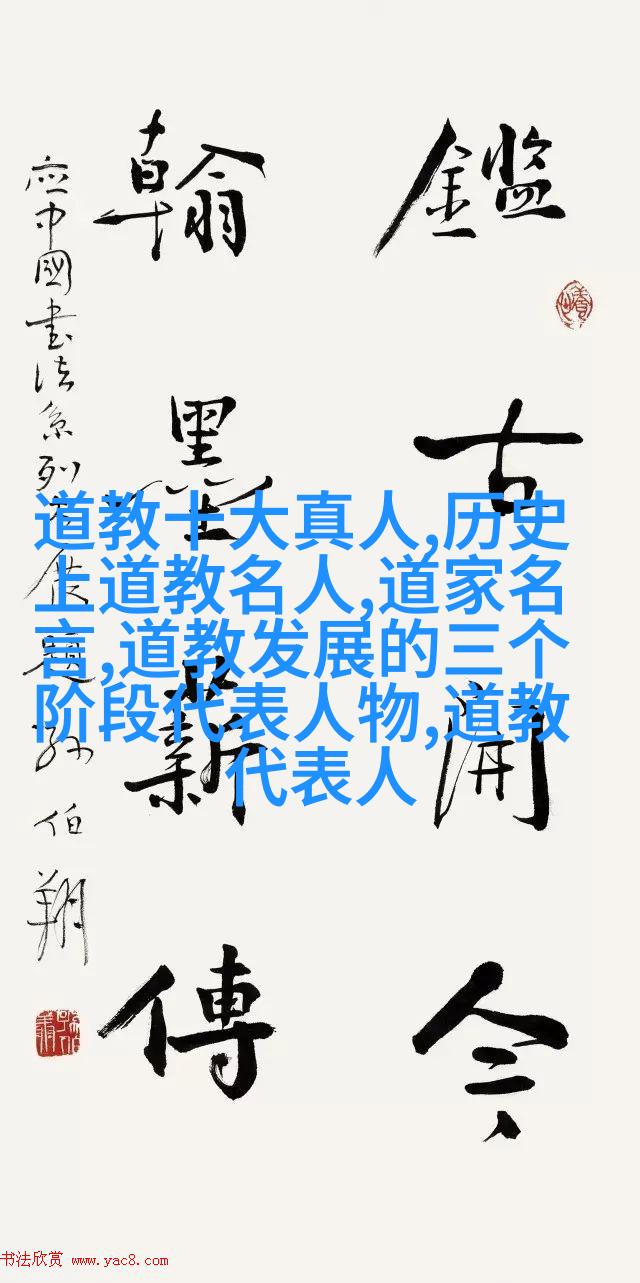 鑑古開今
翰墨薪傳
應中國書法系列大展題 孙伯翔
道教十大真人,历史
上道教名人,道家名
言,道教发展的三个
阶段代表人物,道教
代表人
书法欣赏 www.yac8.com